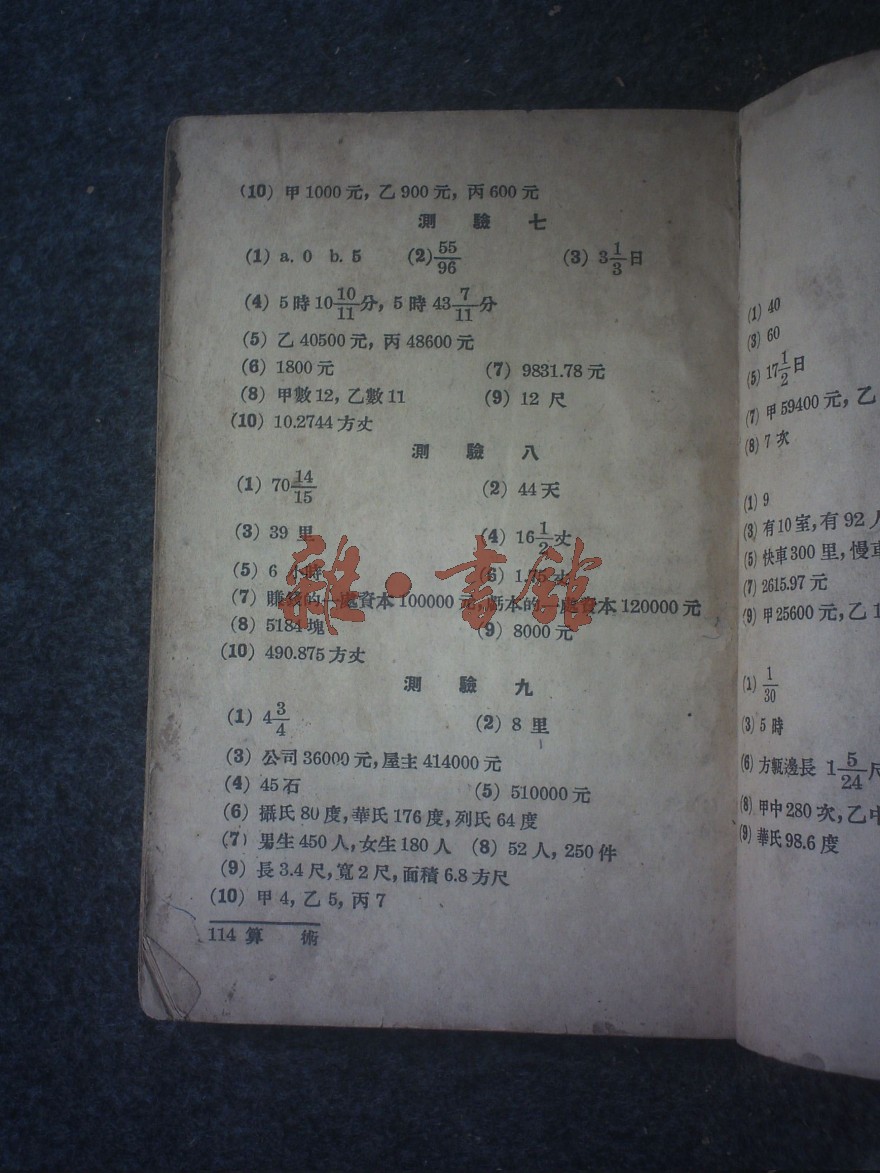 (10) 甲1000元, 乙900元, 丙600元
測 驗 七
(1) a. 0 b. 5 (2) 55/96 (3) 3 1/3日
(4) 5時10 10/11分, 5時43 7/11分
(5) 乙40500元, 丙48600元
(6) 1800元 (7) 9831.78元
(8) 甲數12, 乙數11 (9) 12 尺
(10) 10.2744方丈
測 驗 八
(1) 70 14/15 (2) 44天
(3) 39 里 (4) 16 1/2丈
(5) 6 小時 (6) 1.75丈
(7) 賺錢的一處資本100000元, 虧本的一處資本120000元
(8) 5184塊 (9) 8000元
(10) 490.875方丈
測 驗 九
(1) 4 3/4 (2) 8里
(3) 公司36000元, 屋主414000元
(4) 45石 (5) 510000元
(6) 攝氏80度, 華氏176度, 列氏64度
(7) 男生450人, 女生180人 (8) 52人, 250件
(9) 長3.4尺, 寬2尺, 面積6.8方尺
(10) 甲4, 乙5, 丙7
114 算 術
雜·書館
(1) 40
(3) 60
(5) 17 1/2日
(7) 甲59400元, 乙
(8) 7次
(1) 9
(3) 有10室, 有92人
(5) 快車300里, 慢車
(7) 2615.97元
(9) 甲25600元, 乙1
(1) 1/30
(3) 5時
(6) 方甎邊長 1 5/24尺
(8) 甲中280次, 乙中
(9) 華氏98.6度